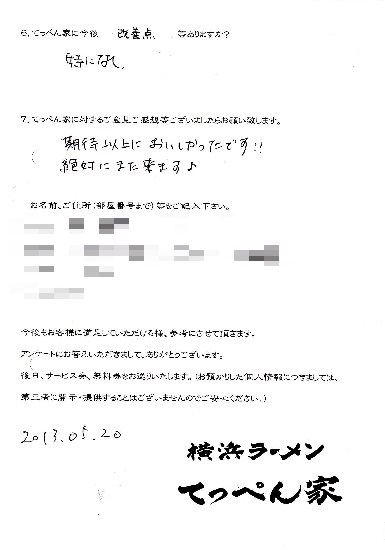 6. てっぺん家に今後 改善点、 等ありますか?
特になし、
7. てっぺん家に対するご意見ご感想等ございましたらお願い致します。
期待以上においしかったです!!
絶対にまた来ます♪
お名前、ご住所(部屋番号まで)等をご記入下さい。
今後もお客様に満足していただける様、参考にさせて頂きます。
アンケートにお答えいただきまして、ありがとうございます。
後日、サービス券、無料券をお送りいたします。(お預かりした個人情報につきましては、
第三者に開示・提供することはございませんのでご安心ください。)
2013.05.20
横浜ラーメン
てっぺん家